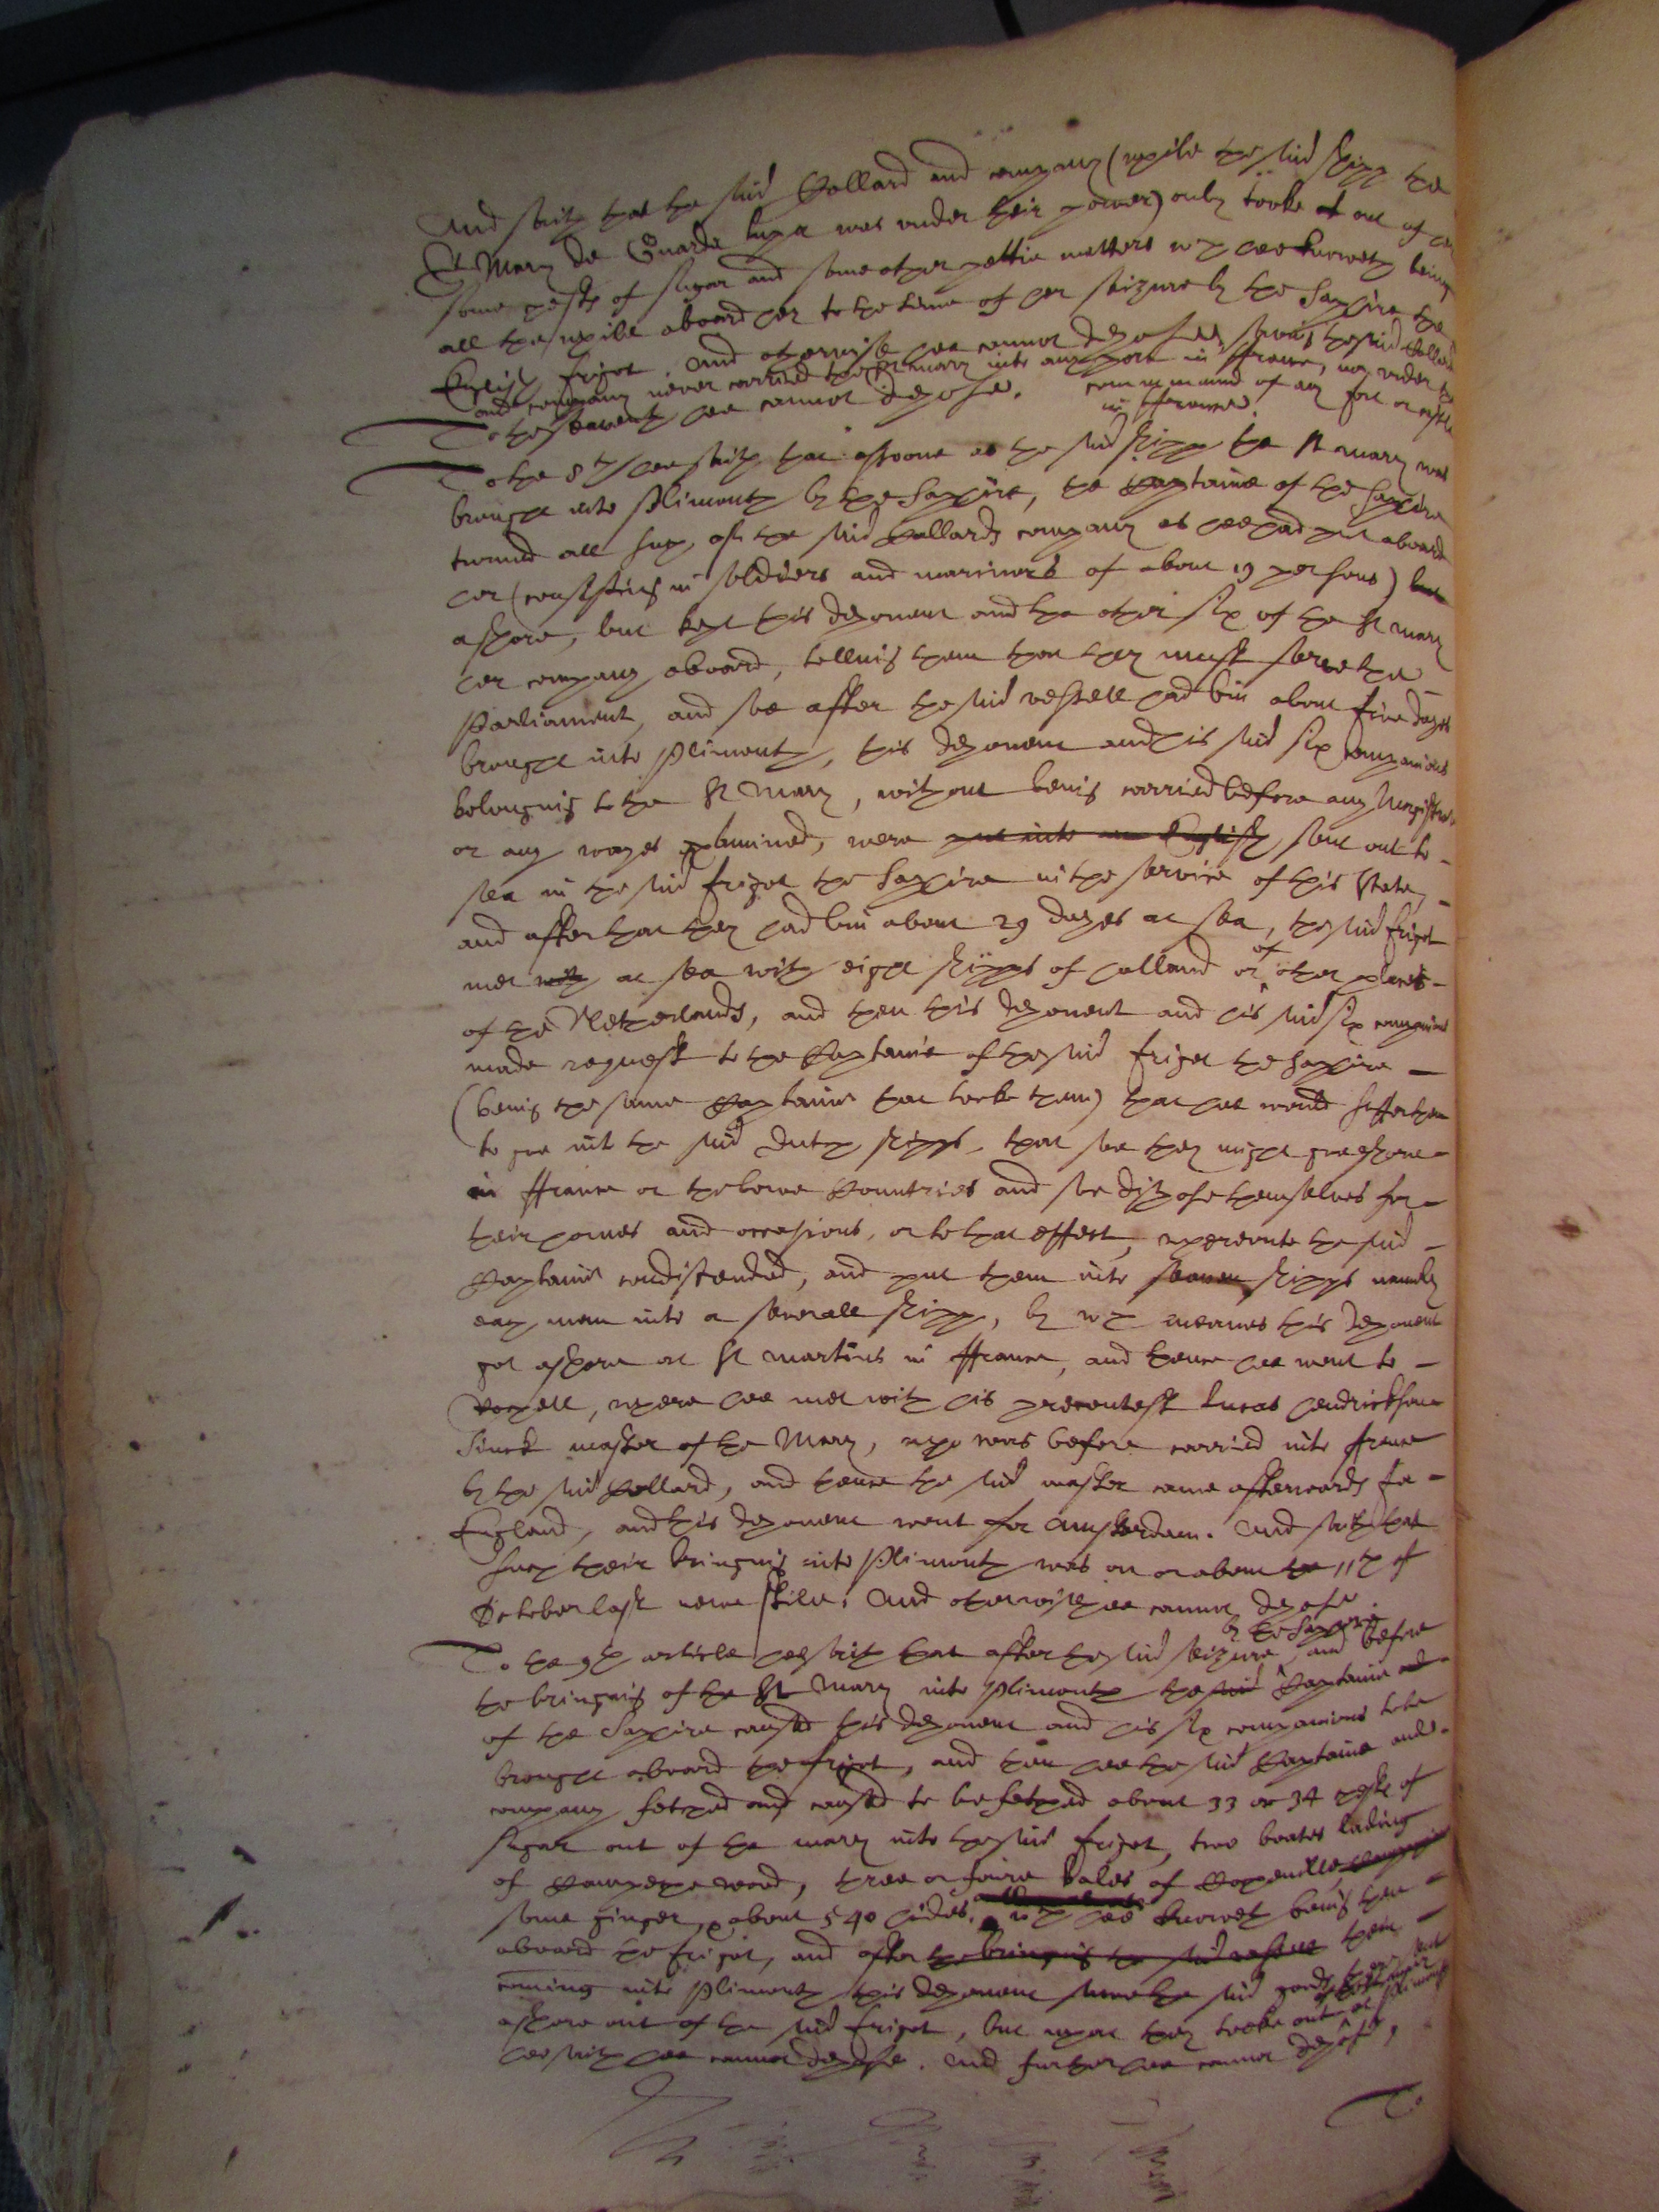 And saith that the said Pollard and company (while the said shipp the
St Mary de Guarda Lupa was under their power) only tooke out of her
some chests of sugar and some other pettie matters wch hee knoweth being
all the while aboard her to the time of her seizure by the Saphire the
English frigot. And otherwise hee cannot depose, saving the said Pollard
and company never carried the St Mary into any port in ffrance, nor under the
commaund of any fort or castle
in ffrance.
To the seaventh hee cannot depose.
To the 8th hee saith that assoone as the said shipp the St Mary was
brought into Plimouth by the Saphire, the Captaine of the Saphire
turned all such of the said Pollards company as hee had put aboard
her (consisting in soldiers and mariners of about 19 persons)
ashore, but kept this deponent and the other six of the St Mary
her company aboard, telling them that they must serve the
Parliament, and soe after the said vessell had bin about five dayes
brought into Plimouth, this deponent and his said six companions
belonging to the St Mary, without being carried before any Magistrate
or any wayes examined, were put into an English sent out to
sea in the said frigot the Saphire in the service of this State,
and after that they had bin about 29 dayes at sea, the said frigot
met with at sea with eight shipps of holland or of other places
of the Netherlands, and then this deponent and his said six companions
made request to the Captaine of the said frigot the Saphire
(being the same Captaine that tooke them) that hee would suffer them
to goe into the said dutch shipps, that soe they might goe ashore
in ffrance or the lowe Countries and soe dispose themselves for
their homes and occasions, or to that effect, whereunto the said
Captaine condiscended, and put them into seaven shipps namely
each man into a severall shipp, by wch meanes this deponent
got ashore at St Martins in ffrance, and thence hee went to
Rochell, where hee met with his precontest Lucas hendrickson
Sinck master of the Mary, who was before carried into ffrance
by the said Pollard, and thence the said master came afterwards for
England, and this deponent went for Amsterdam. And saith that
such their bringing into Plimouth was on or about the 11th of
October last newe stile. And otherwise hee cannot depose.
To the 9th article hee saith that after the said seizure by the Saphire and before
the bringing of the St Mary into Plimouth the said Captaine
of the Saphire caused this deponent and his six companions to be
brought aboard the frigot, and then hee the said Captaine and
company fetched and caused to be fetched about 33 or 34 chests of
sugar out of the Mary into the said frigot, two boates lading
of Campeche wood, three or foure bales of Cochenille,
some ginger, about 540 hides, wch hee knoweth being then
aboard the frigot, and after the bringing the said vessell their
coming into Plimouth this deponent sawe the said goods
ashore out of the said frigot, but what they tooke out at Plimouth
hee saith hee cannot depose. And further hee cannot depose.
To